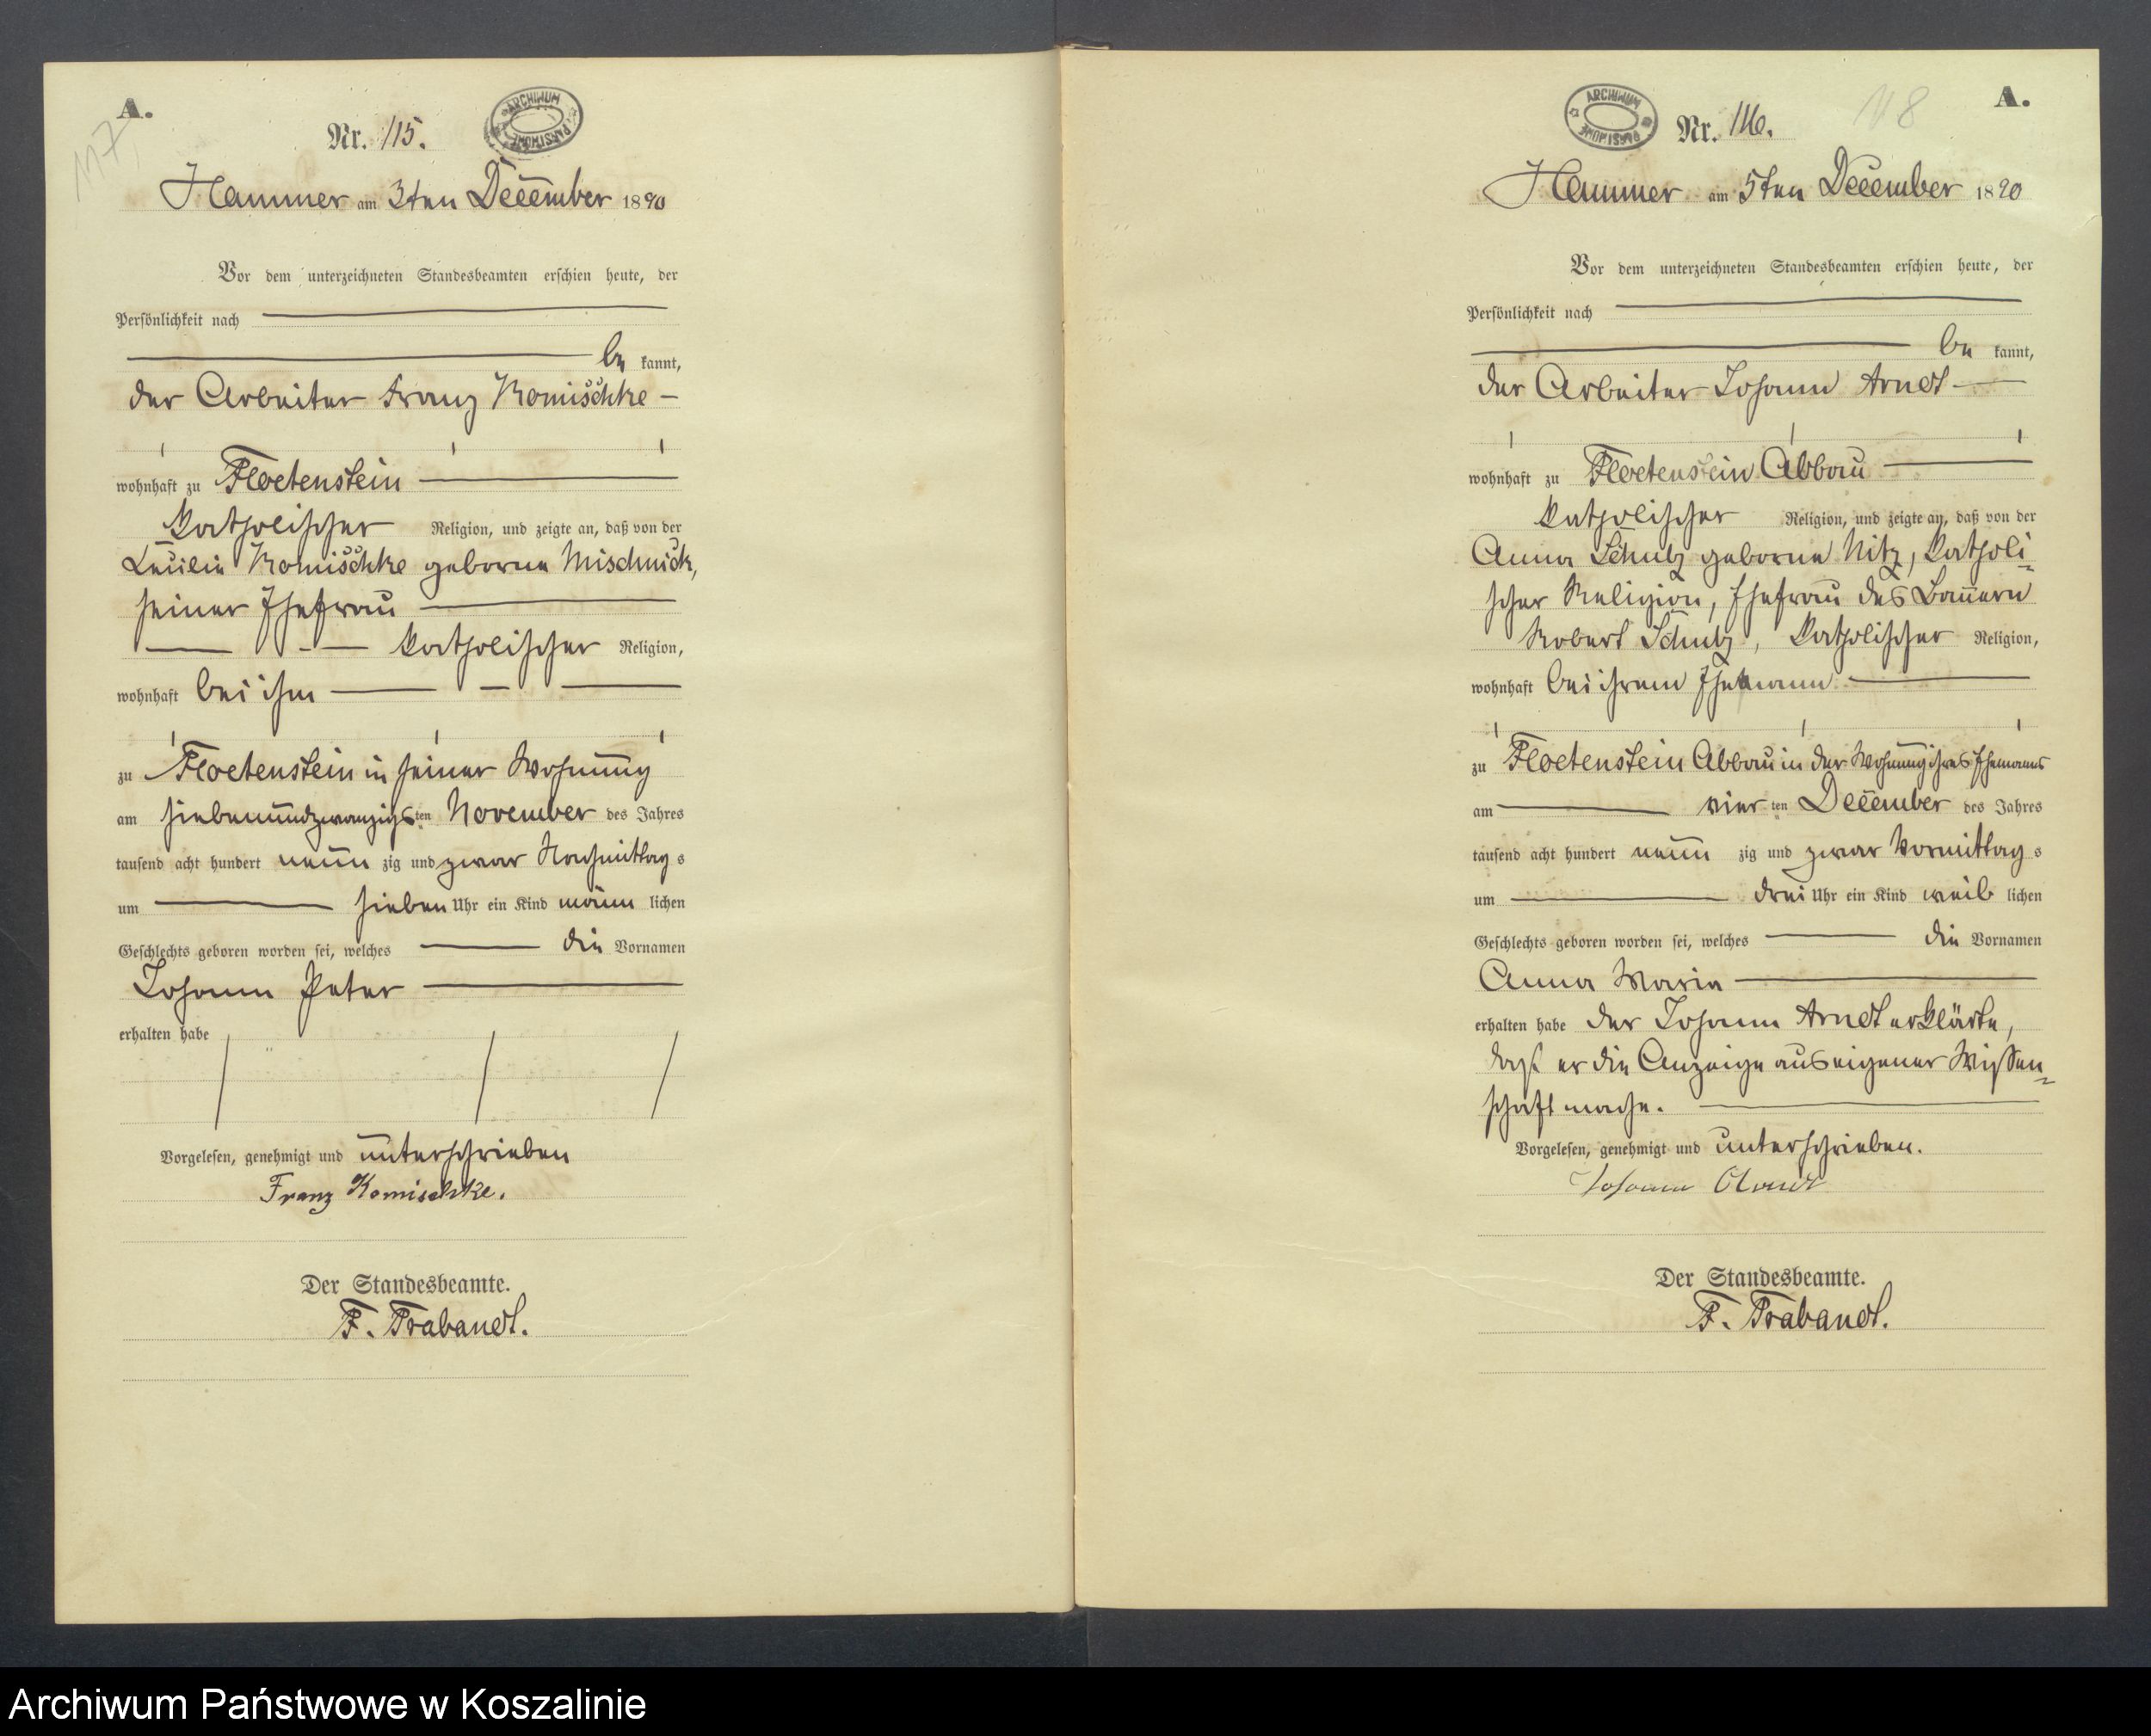 A.
117
Nr. 115.
ARCHIWUM PAŃSTWOWE
Hammer am 3ten December 1890
Vor dem unterzeichneten Standesbeamten erschien heute, der
Persönlichkeit nach
be kannt,
der Arbeiter Franz Komischke
wohnhaft zu Floetenstein
katholischer Religion, und zeigte an, daß von der
Cecilie Komischke geborne Mischnick,
seiner Ehefrau
katholischer Religion,
wohnhaft bei ihm
zu Floetenstein in seiner Wohnung
am siebenundzwanzigsten November des Jahres
tausend acht hundert neun zig und zwar Nachmittag s
um sieben Uhr ein Kind männ lichen
Geschlechts geboren worden sei, welches die Vornamen
Johann Peter
erhalten habe
Vorgelesen, genehmigt und unterschrieben
Franz Komischke.
Der Standesbeamte.
F. Trabandt.
A.
118
Nr. 116.
ARCHIWUM PAŃSTWOWE
Hammer am 5ten December 1890
Vor dem unterzeichneten Standesbeamten erschien heute, der
Persönlichkeit nach
be kannt,
der Arbeiter Johann Arndt
wohnhaft zu Floetenstein Abbau
katholischer Religion, und zeigte an, daß von der
Anna Schulz geborne Nitz, katholi=
scher Religion, Ehefrau des Bauern
Robert Schulz, katholischer Religion,
wohnhaft bei ihrem Ehemann
zu Floetenstein Abbau in der Wohnung ihres Ehemanns
am vier ten December des Jahres
tausend acht hundert neun zig und zwar Vormittag s
um drei Uhr ein Kind weib lichen
Geschlechts geboren worden sei, welches die Vornamen
Anna Maria
erhalten habe der Johann Arndt erklärte,
daß er die Anzeige aus eigener Wissen=
schaft mache.
Vorgelesen, genehmigt und unterschrieben.
Johann Arndt
Der Standesbeamte.
F. Trabandt.
Archiwum Państwowe w Koszalinie